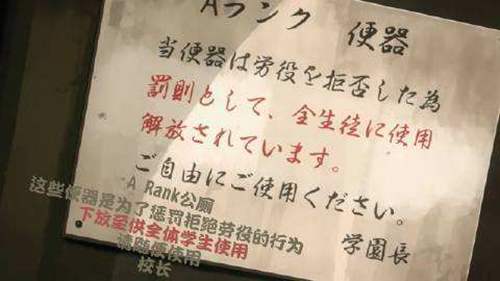 Aランク 便器
当便器は労役を拒否した為
罰則として、全生徒に使用
解放されています。
ご自由にご使用ください。
学園長
A Rank公厕
这些便器是为了惩罚拒绝劳役的行为
下放至供全体学生使用
请随便使用
校长